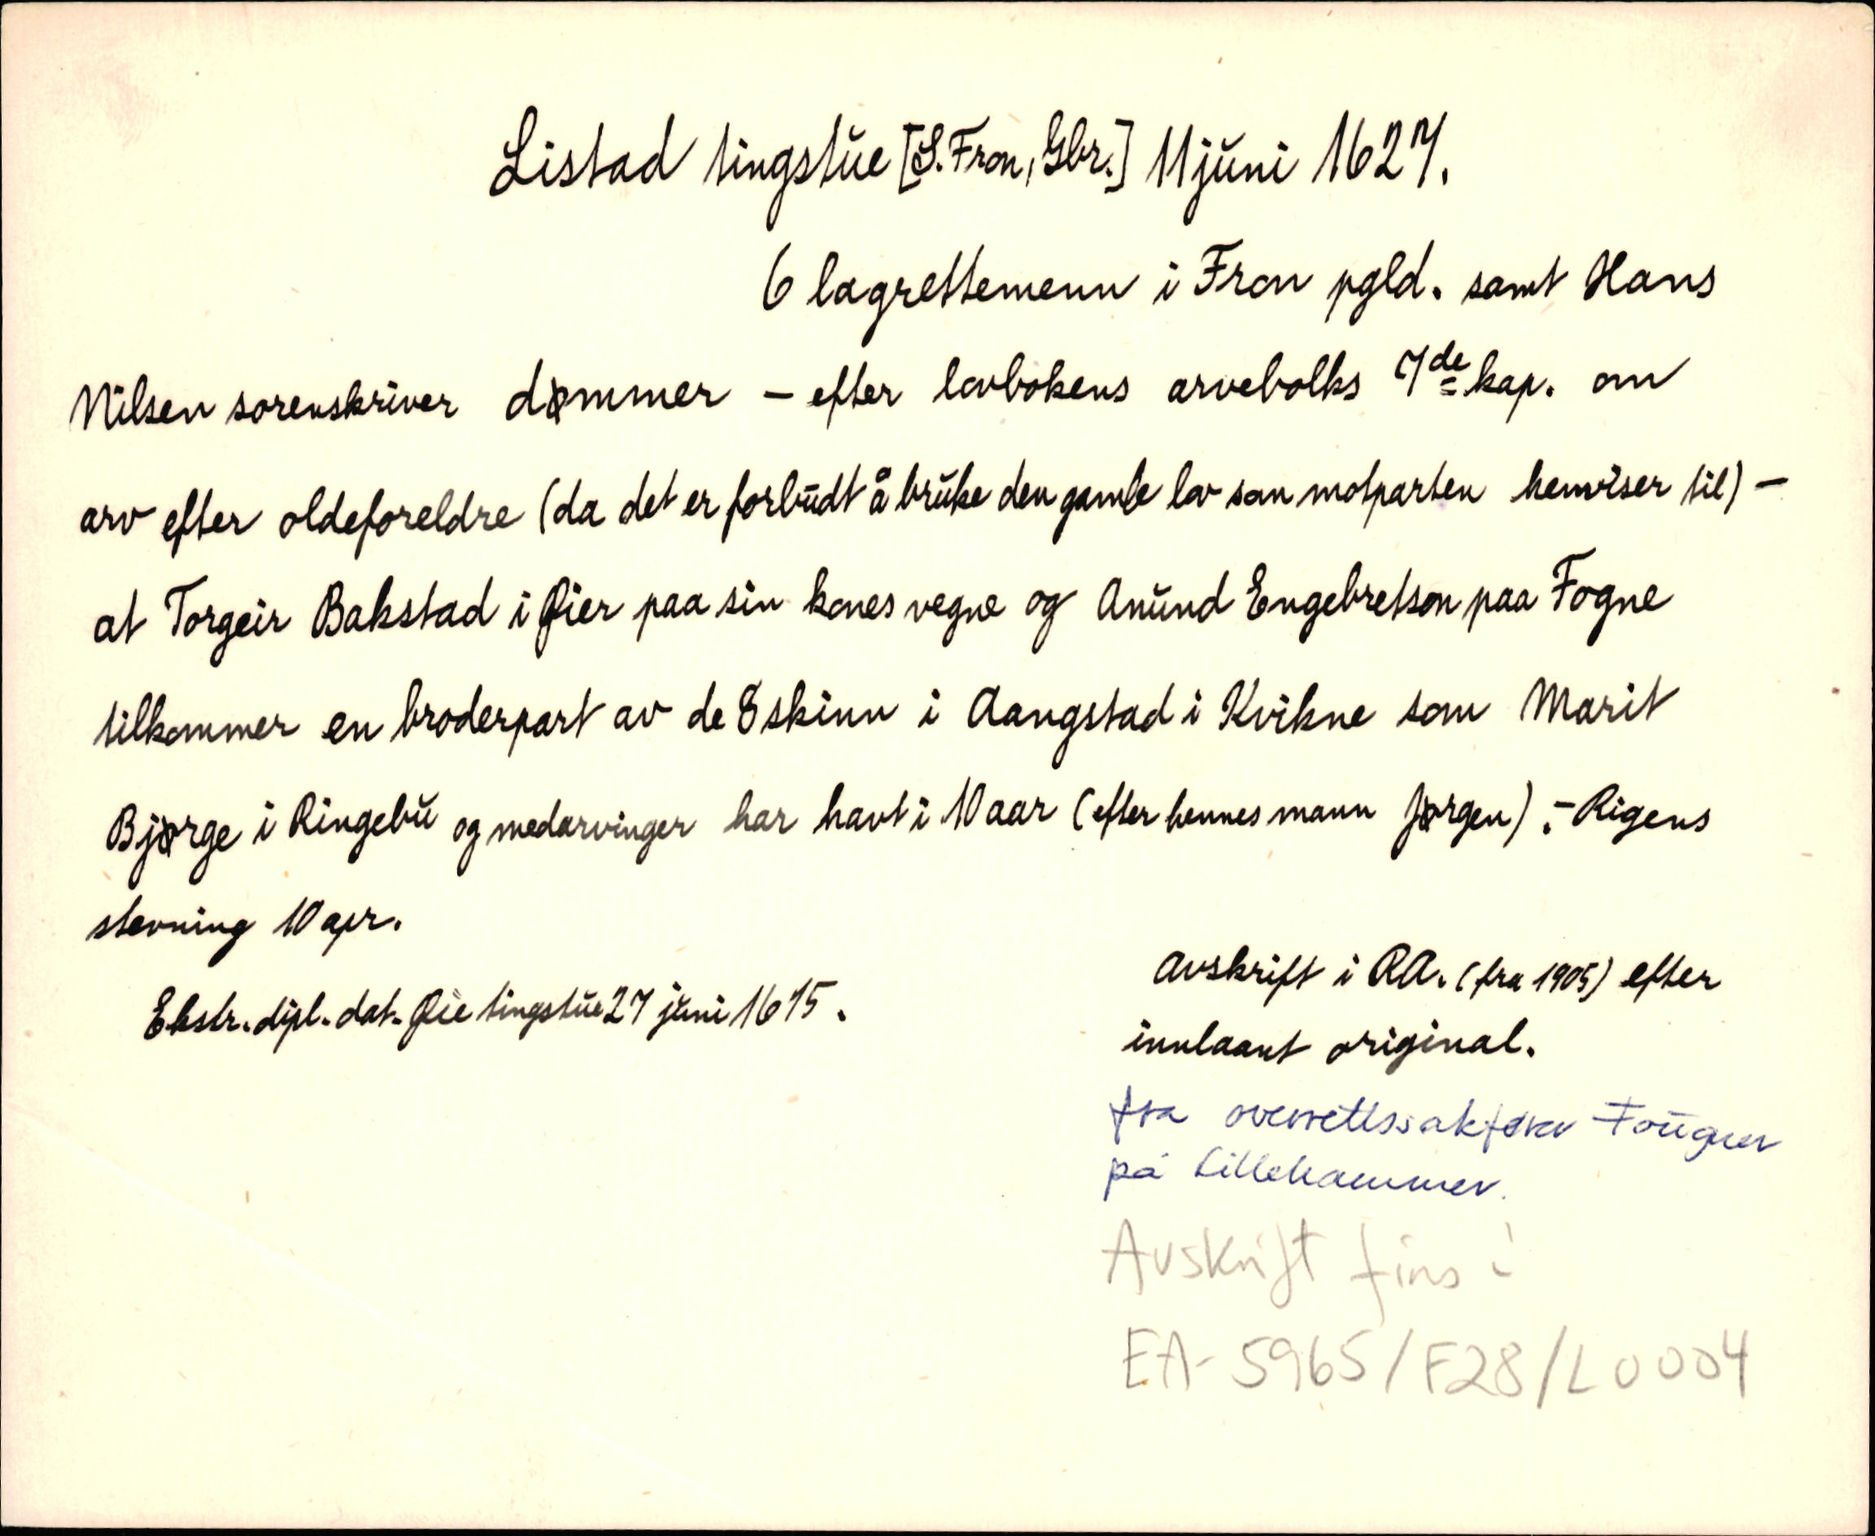 Listad tingstue [S. Fron, Gbr.] 11 juni 1627.
6 lagrettemenn i Fron pgld. samt Hans
Nilsen sorenskriver dømmer – efter lovbokens arvebolks 7de kap. om
arv efter oldeforeldre (da det er forbudt å bruke den gamle lov som motparten henviser til) –
at Torgeir Bakstad i Øier paa sin kones vegne og Anund Engebretson paa Fogne
tilkommer en broderpart av de 8 skinn i Aangstad i Kvikne som Marit
Bjørge i Ringebu og medarvinger har havt i 10 aar (efter hennes mann Jørgen). – Rigens
stevning 10 apr.
Ekstr. dipl. dat. Øie tingstue 27 juni 1615.
Avskrift i RA. (fra 1905) efter
innlaant original.
fra overrettssakfører Fougner
på Lillehammer.
Avskrift fins i
EA-5965/F28/L0004